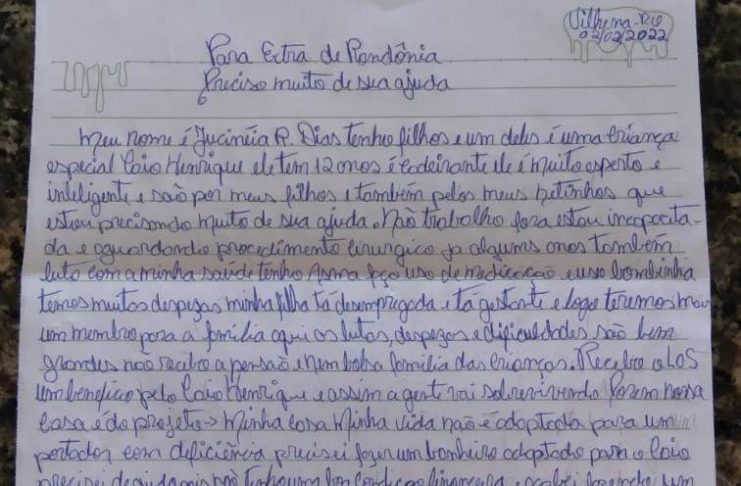 Vilhena-RO
02/02/2022
Para Extra de Rondônia
Preciso muito de sua ajuda
Meu nome é Jucinéia R. Dias tenho filhos e um deles é uma criança
especial Caio Henrique ele tem 12 anos é cadeirante ele é muito esperto e
inteligente e são por meus filhos e também pelos meus netinhos que
estou precisando muito de sua ajuda. Não trabalho fora estou incapacita-
da e aguardando procedimento cirurgico ja alguns anos também
luto com a minha saúde tenho Asma faço uso de medicação e uso bombinha
temos muitas despezas minha filha tá desempregada e tá gestante e logo teremos mais
um membro para a família aqui as lutas, despezas e dificuldades são bem
grandes não recebo a pensão e nem bolsa família das crianças. Recebo o LOS
um benefício pelo Caio Henrique e assim a gente vai sobrevivendo Porem nossa
casa é do projeto → Minha Casa Minha vida não é adaptada para um
portador com deficiência precisei fazer um banheiro adaptado para o Caio
precisei de ajuda mas não tinha uma boa condição financeira e acabei fazendo um